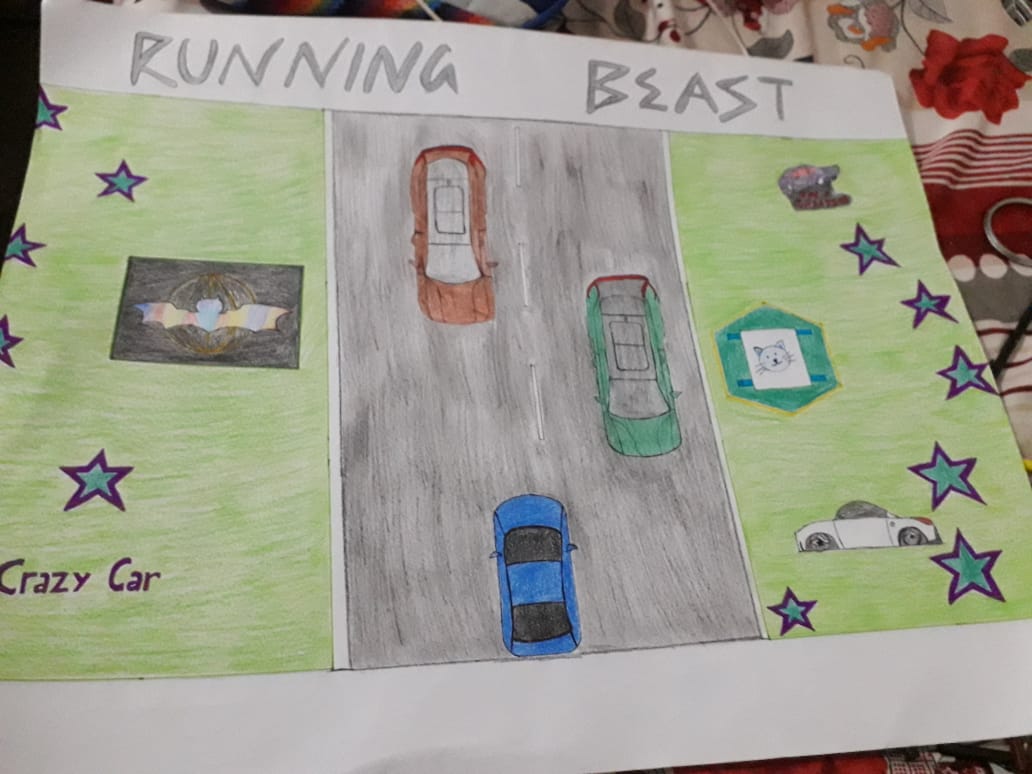 RUNNING BEAST
Crazy Car